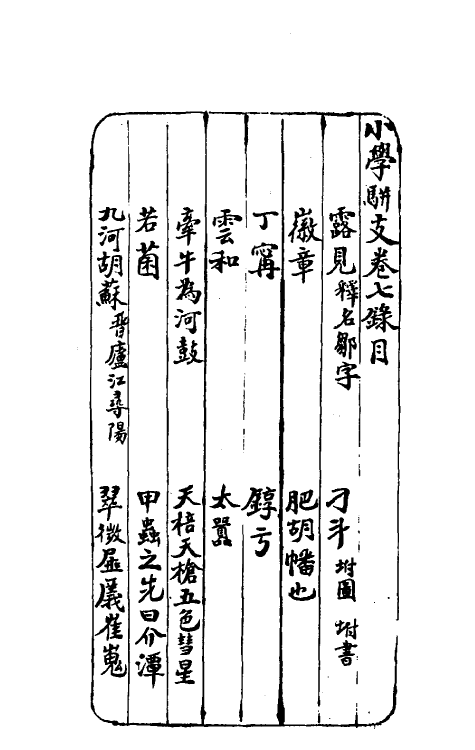 小學駢支卷七錄目
露見 釋名鄒字 刁斗 坿圖 坿書
徽章 肥胡幡也
丁甯 錞亏
雲和 太嚚
牽牛為河鼓 天棓天槍五色彗星
若菌 甲蟲之先曰介潭
九河胡蘇 晋廬江尋陽 翠微厜㕒崔嵬